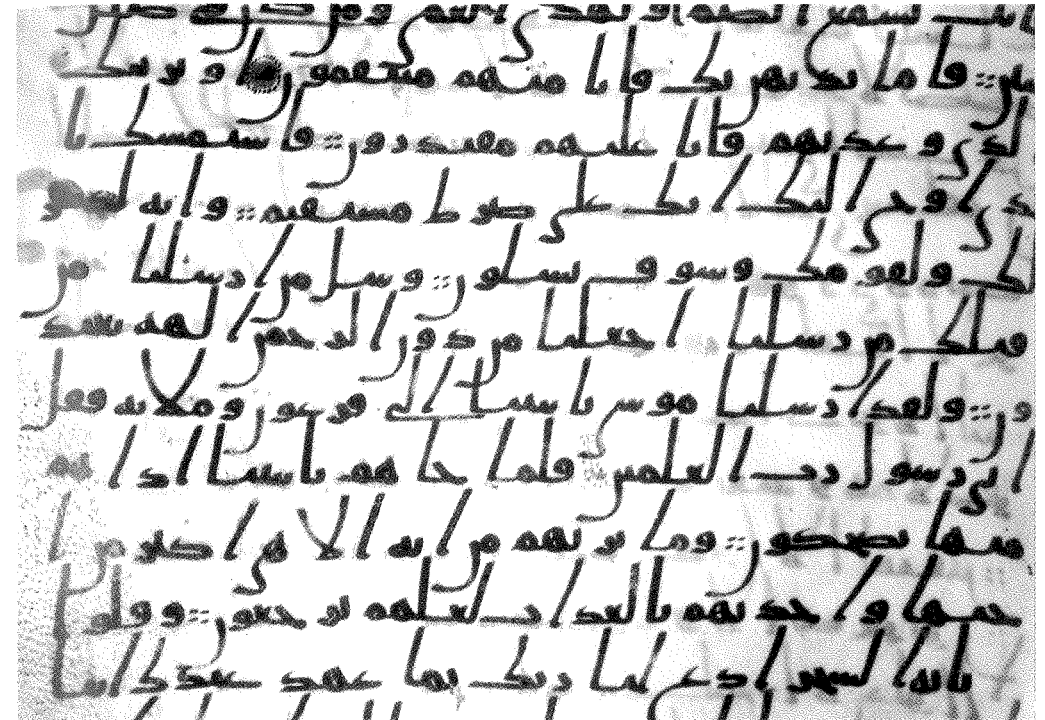 نت تسمع الصم او تهدى العمى ومن كان فى ضلل
مبين :: فاما نذهبن بك فانا منهم منتقمون او نرينك ا
لذى وعدنهم فانا عليهم مقتدرون :: فاستمسك با
لذى اوحى اليك انك على صرط مستقيم :: وانه لذكر
لك ولقومك وسوف تسلون :: وسل من ارسلنا من
قبلك من رسلنا اجعلنا من دون الرحمن الهه يعبد
ون :: ولقد ارسلنا موسى بايتنا الى فرعون وملايه فقل
انى رسول رب العلمين فلما جاهم بايتنا اذا هم
منها يضحكون :: وما نريهم من ايه الا هى اكبر من ا
ختها واخذنهم بالعذاب لعلهم يرجعون :: وقلو
ا يايه السحر ادع لنا ربك بما عهد عندك اننا